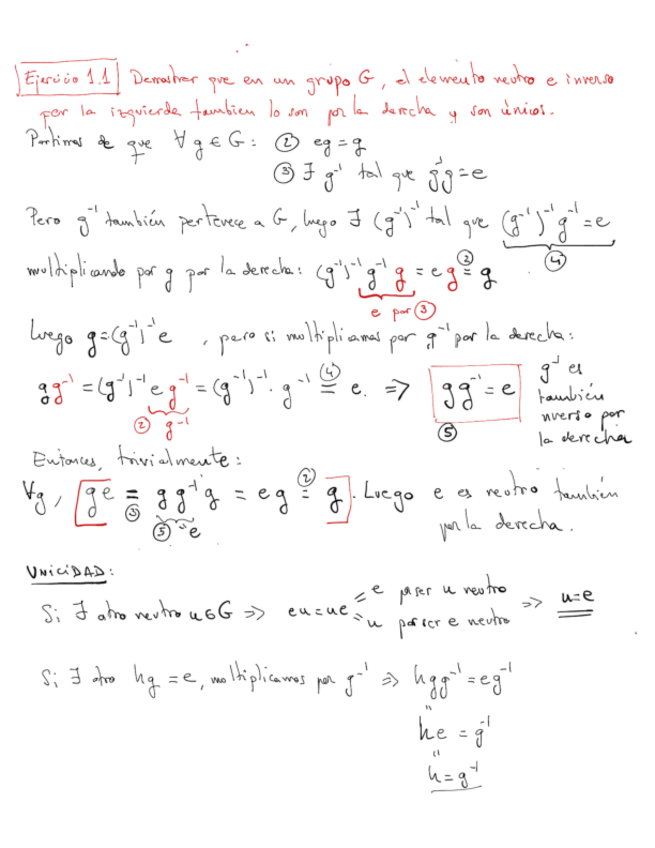 Ejercicio 1.1 Demostrar que en un grupo G, el elemento neutro e inverso
por la izquierda tambien lo son por la derecha y son únicos.
Partimos de que ∀ g ∈ G: ② eg = g
③ ∃ g⁻¹ tal que g⁻¹g = e
Pero g⁻¹ también pertenece a G, luego ∃ (g⁻¹)⁻¹ tal que (g⁻¹)⁻¹ g⁻¹ = e
④
multiplicando por g por la derecha: (g⁻¹)⁻¹ g⁻¹ g = e g =② g
e por ③
luego g = (g⁻¹)⁻¹ e , pero si multiplicamos por g⁻¹ por la derecha:
g g⁻¹ = (g⁻¹)⁻¹ e g⁻¹ = (g⁻¹)⁻¹ · g⁻¹ =④ e. => g g⁻¹ = e g⁻¹ es también inverso por la derecha
② g⁻¹ ⑤
Entonces, trivialmente:
∀g, ge =③ g g⁻¹ g = eg =② g. Luego e es neutro también
⑤ "e por la derecha.
UNICIDAD:
Si ∃ otro neutro u ∈ G => eu = ue = e por ser u neutro => u = e
= u por ser e neutro
Si ∃ otro hg = e, multiplicamos por g⁻¹ => hgg⁻¹ = eg⁻¹
"
he = g⁻¹
"
h = g⁻¹